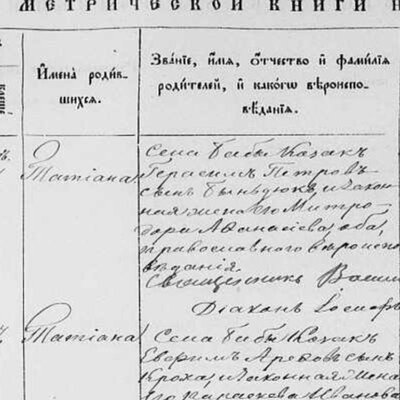 МЕТРИЧЕСКОЙ КНИГИ Н
Имена родив-
шихся.
Званіе, имя, отчество и фамилія
родителей, и какого вѣроиспо-
вѣданія.
Татіана
Села Бабы Козакъ
Герасимъ Петровъ
сынъ Бындюкъ, и закон-
ная жена его Митро-
дора Аѳанасіева, оба
православного вѣроиспо-
вѣданія.
Священникъ Васил
Діаконъ Іосиф
Татіана
Села Бабы Козакъ
Евфимъ сынъ
и законная жена
его Иванова